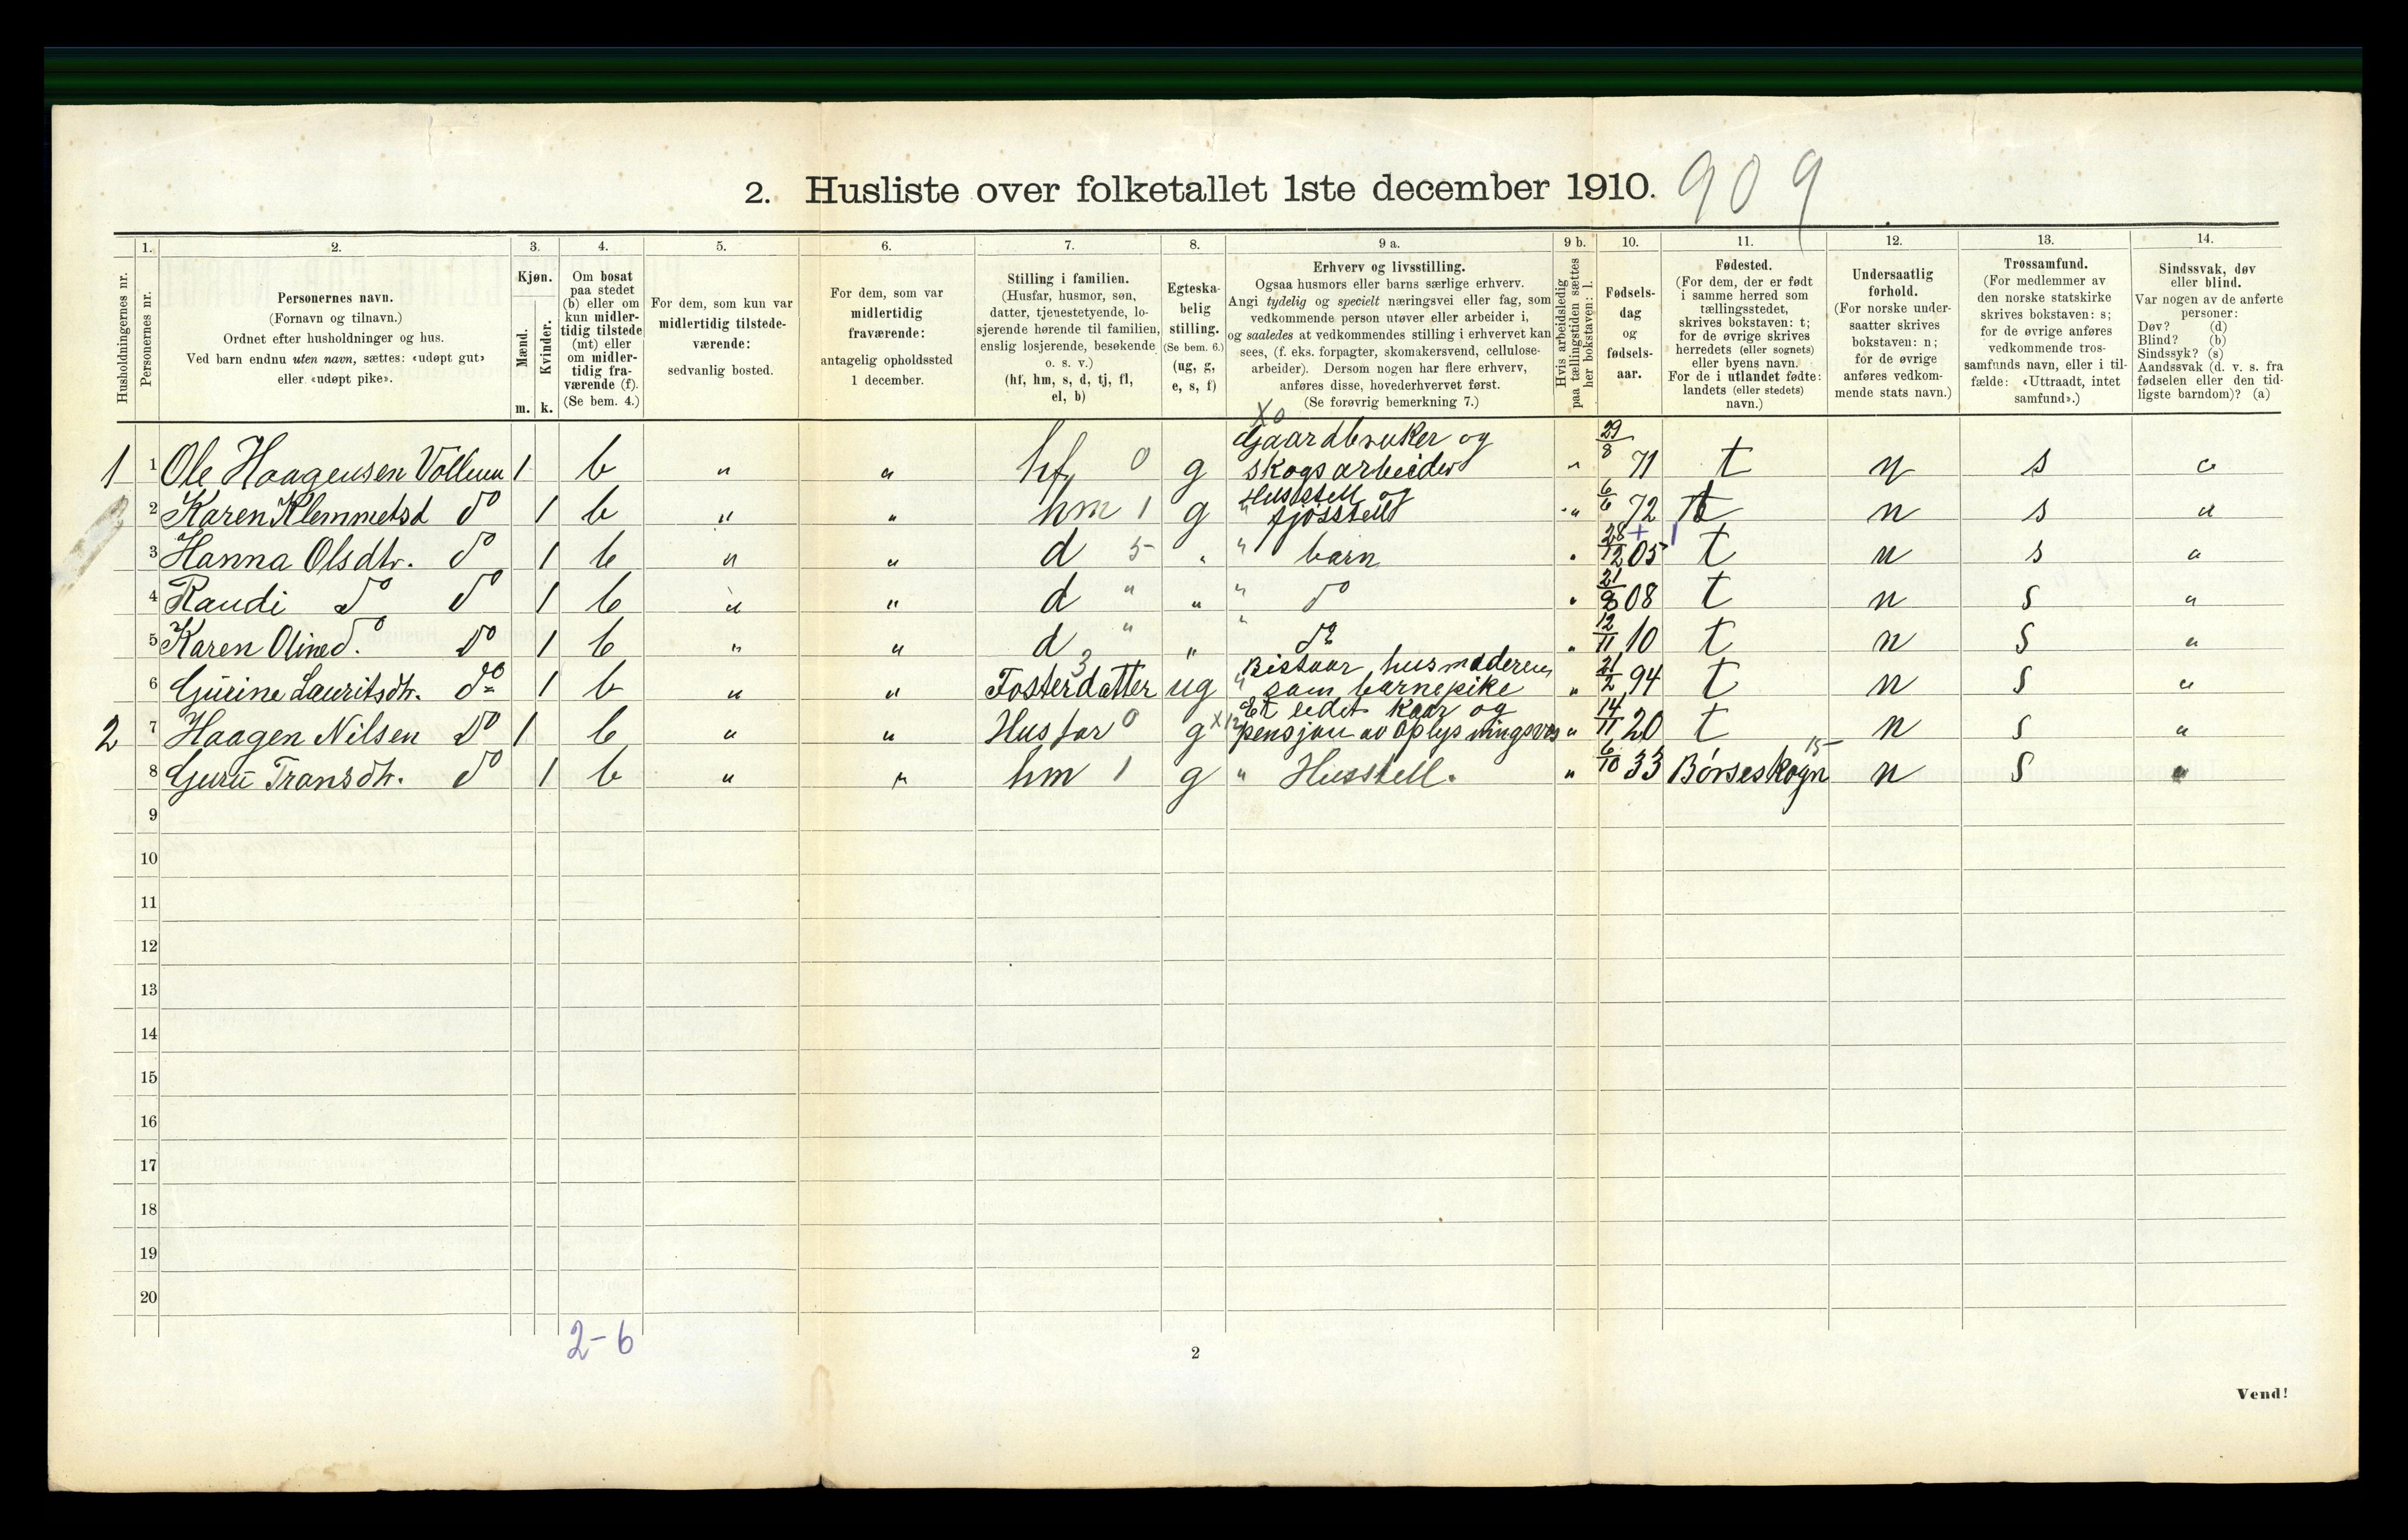 2. Husliste over folketallet 1ste december 1910. 909
1. 2. 3. 4. 5. 6. 7. 8. 9 a. 9 b. 10. 11. 12. 13. 14.
Husholdningernes nr.
Personernes nr.
Personernes navn.
(Fornavn og tilnavn.)
Ordnet efter husholdninger og hus.
Ved barn endnu uten navn, sættes: «udøpt gut»
eller «udøpt pike».
Kjøn.
Mænd.
Kvinder.
m. k.
Om bosat
paa stedet
(b) eller om
kun midler-
tidig tilstede
(mt) eller
om midler-
tidig fra-
værende (f).
(Se bem. 4.)
For dem, som kun var
midlertidig tilstede-
værende:
sedvanlig bosted.
For dem, som var
midlertidig
fraværende:
antagelig opholdssted
1 december.
Stilling i familien.
(Husfar, husmor, søn,
datter, tjenestetyende, lo-
sjerende hørende til familien,
enslig losjerende, besøkende
o. s. v.)
(hf, hm, s, d, tj, fl,
el, b)
Egteska-
belig
stilling.
(Se bem. 6.)
(ug, g,
e, s, f)
Erhverv og livsstilling.
Ogsaa husmors eller barns særlige erhverv.
Angi tydelig og specielt næringsvei eller fag, som
vedkommende person utøver eller arbeider i,
og saaledes at vedkommendes stilling i erhvervet kan
sees, (f. eks. forpagter, skomakersvend, cellulose-
arbeider). Dersom nogen har flere erhverv,
anføres disse, hovederhvervet først.
(Se forøvrig bemerkning 7.)
Hvis arbeidsledig
paa tællingstiden sættes
her bokstaven: l.
Fødsels-
dag
og
fødsels-
aar.
Fødested.
(For dem, der er født
i samme herred som
tællingsstedet,
skrives bokstaven: t;
for de øvrige skrives
herredets (eller sognets)
eller byens navn.
For de i utlandet fødte:
landets (eller stedets)
navn.)
Undersaatlig
forhold.
(For norske under-
saatter skrives
bokstaven: n;
for de øvrige
anføres vedkom-
mende stats navn.)
Trossamfund.
(For medlemmer av
den norske statskirke
skrives bokstaven: s;
for de øvrige anføres
vedkommende tros-
samfunds navn, eller i til-
fælde: «Uttraadt, intet
samfund».)
Sindssvak, døv
eller blind.
Var nogen av de anførte
personer:
Døv? (d)
Blind? (b)
Sindssyk? (s)
Aandssvak (d. v. s. fra
fødselen eller den tid-
ligste barndom)? (a)
X0
1 1 Ole Haagensen Vollum 1 b " " hf 0 g Gaardbruker og skogsarbeider " 29/8 71 t n s "
2 Karen Klemmetsd do 1 b " " hm 1 g " Husstell og fjøsstell " 6/6 72 t n s "
3 Hanna Olsdtr. do 1 b " " d 5 " " barn " 28/12 05 t n s "
4 Randi do do 1 b " " d " " " do " 21/8 08 t n s "
5 Karen Oline do. do 1 b " " d " " " do " 12/11 10 t n s "
6 Gurine Lauritsdtr. do 1 b " " Fosterdatter 3 ug " Bistaar husmoderen som barnepike " 21/2 94 t n s "
2 7 Haagen Nilsen do 1 b " " Husfar 0 g X12 Et ledet kaar og pensjon av Oplysningsves " 14/11 20 t n s "
8 Guru Transdtr. do 1 b " " hm 1 g " Husstell. " 6/10 33 Børseskogn 15 n s "
9
10
11
12
13
14
15
16
17
18
19
20
2-6
2
Vend!